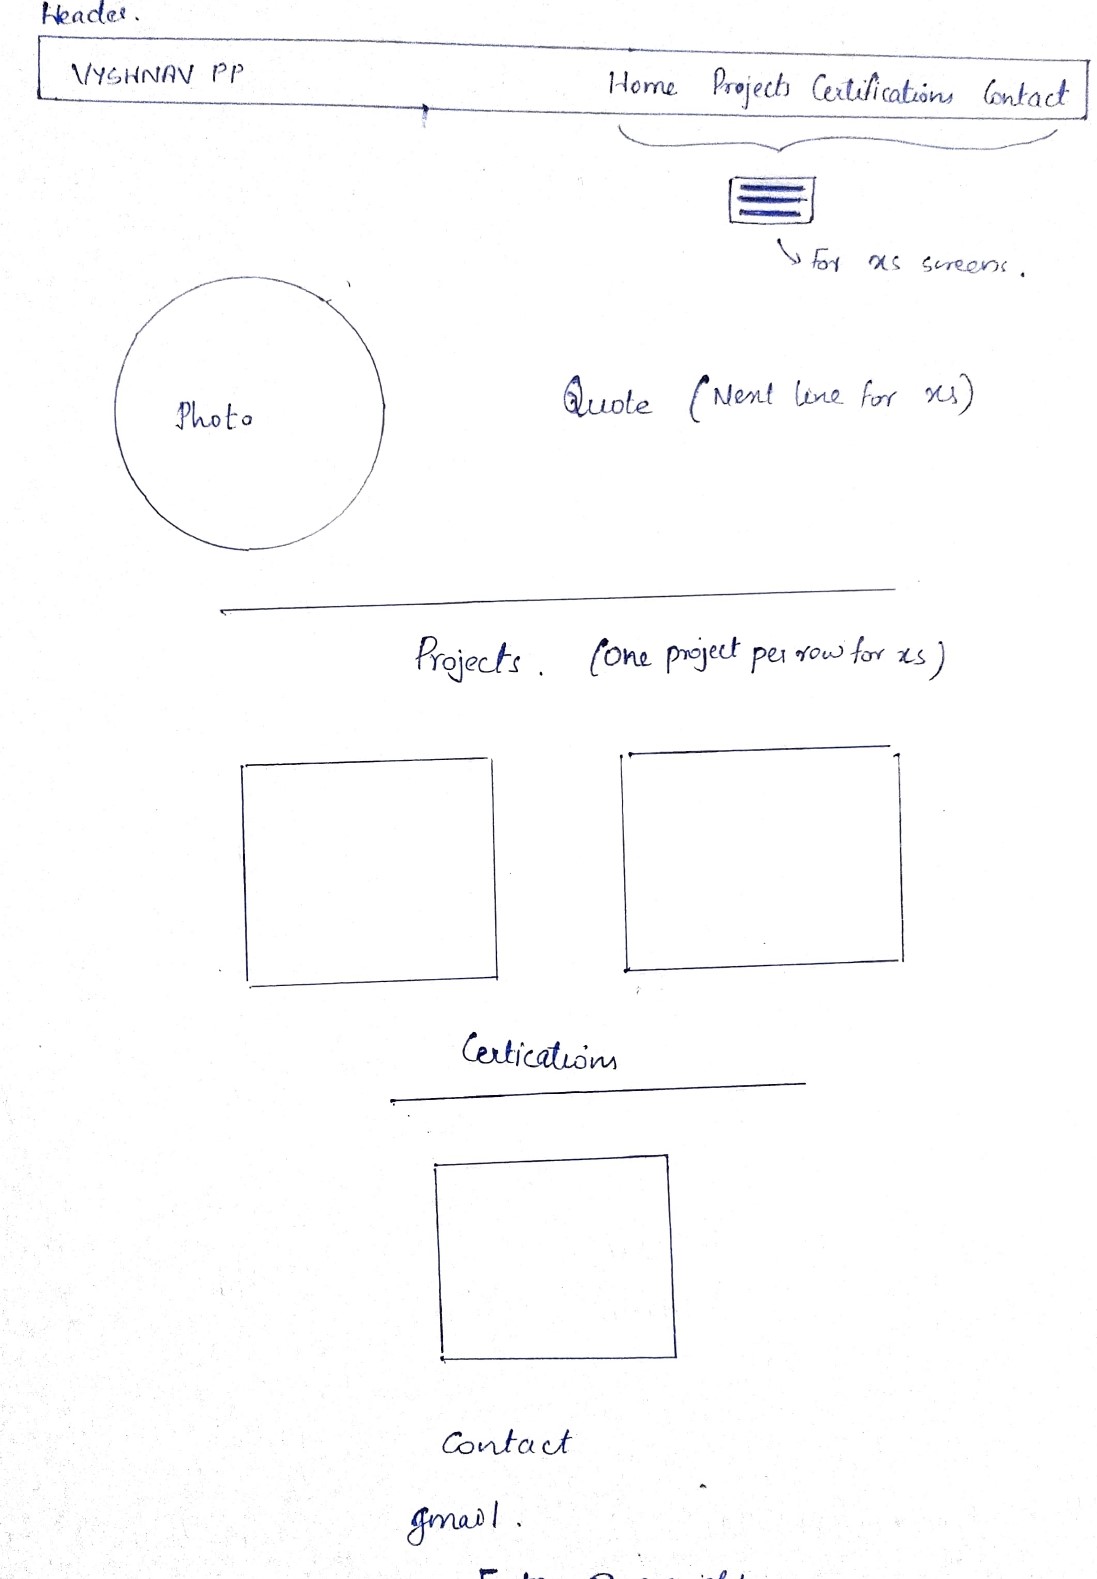 Header.
VYSHNAV PP Home Projects Certifications Contact
For xs screens.
Photo
Quote (Next line for xs)
Projects. (One project per row for xs)
Certications
Contact
gmail.